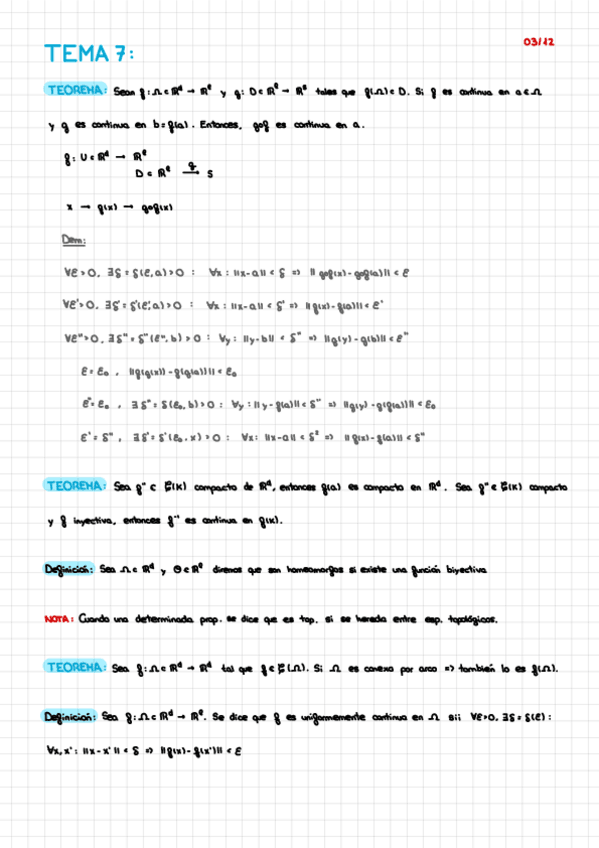 03/12
TEMA 7:
TEOREMA: Sean f: Ω ⊂ ℝᵈ → ℝᵉ y g: D ⊂ ℝᵉ → ℝˢ tales que f(Ω) ⊂ D. Si f es continua en a ∈ Ω
y g es continua en b = f(a). Entonces, g∘f es continua en a.
f: U ⊂ ℝᵈ → ℝᵉ
D ⊂ ℝᵉ → S
x → f(x) → g∘f(x)
Dem:
∀ε>0, ∃δ = δ(ε,a) > 0 : ∀x : ||x-a|| < δ => || g∘f(x) - g∘f(a) || < ε
∀ε'>0, ∃δ' = δ'(ε',a) > 0 : ∀x : ||x-a|| < δ' => || f(x) - f(a) || < ε'
∀ε''>0, ∃δ'' = δ''(ε'',b) > 0 : ∀y : ||y-b|| < δ'' => ||g(y) - g(b)|| < ε''
ε = ε₀ ,
ε'' = ε₀ , ∃δ'' = δ(ε₀,b) > 0 : ∀y : ||y - f(a)|| < δ'' => ||g(y) - g(f(a))|| < ε₀
ε' = δ'' , ∃δ' = δ'(ε₀,x) > 0 : ∀x : ||x-a|| < => || f(x) - f(a) || < δ''
TEOREMA: Sea compacto de ℝᵈ, entonces es compacto en ℝᵈ. Sea compacto
y f inyectiva, entonces f⁻¹ es continua en f(K).
Definición: Sea Ω ⊂ ℝᵈ y Θ ⊂ ℝᵉ diremos que son homeomorfos si existe una función biyectiva
NOTA: Cuando una determinada prop. se dice que es top. si se hereda entre esp. topológicos.
TEOREMA: Sea f: Ω ⊂ ℝᵈ → ℝᵈ tal que f ∈ (Ω). Si Ω es conexo por arco => también lo es f(Ω).
Definición: Sea f: Ω ⊂ ℝᵈ → ℝᵉ. Se dice que f es uniformemente continua en Ω sii ∀ε>0, ∃δ = δ(ε) :
∀x,x' : ||x - x'|| < δ => ||f(x) - f(x')|| < ε